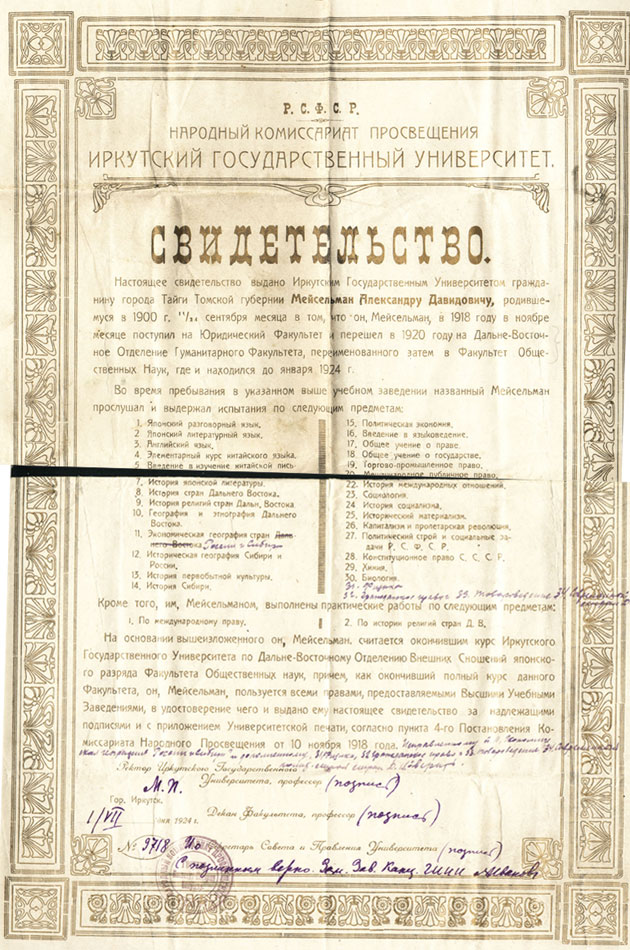 Р. С. Ф. С. Р.
НАРОДНЫЙ КОМИССАРИАТ ПРОСВЕЩЕНИЯ
ИРКУТСКИЙ ГОСУДАРСТВЕННЫЙ УНИВЕРСИТЕТ.
СВИДЕТЕЛЬСТВО.
Настоящее свидетельство выдано Иркутским Государственным Университетом гражда-
нину города Тайги Томской губернии Мейсельман Александру Давидовичу, родивше-
муся в 1900 г. сентября месяца в том, что он, Мейсельман, в 1918 году в ноябре
месяце поступил на Юридический Факультет и перешел в 1920 году на Дальне-Восточ-
ное Отделение Гуманитарного Факультета, переименованного затем в Факультет Общес-
ственных Наук, где и находился до января 1924 г.
Во время пребывания в указанном выше учебном заведении названный Мейсельман
прослушал и выдержал испытания по следующим предметам:
1. Японский разговорный язык,
2. Японский литературный язык,
3. Английский язык,
4. Элементарный курс китайского языка,
5. Введение в изучение китайской пись-
7. История японской литературы.
8. История стран Дальнего Востока.
9. История религий стран Дальн. Востока
10. География и этнография Дальнего
Востока.
11. Экономическая география стран Даль-
него Востока. России и Сибири
12. Историческая география Сибири и
России,
13. История первобытной культуры,
14. История Сибири,
15. Политическая экономия,
16. Введение в языковедение.
17. Общее учение о праве.
18. Общее учение о государстве,
19. Торгово-промышленное право,
20. Международное публичное право,
22. История международных отношений,
23. Социология.
24. История социализма,
25. Исторический материализм.
26. Капитализм и пролетарская революция,
27. Политический строй и социальные за-
дачи Р. С. Ф. С. Р.
28. Конституционное право С. С. С. Р.
29. Химия,
30. Биология.
31. Физика
32. Гражданское право 33. Товароведение 34.
Кроме того, им, Мейсельманом, выполнены практические работы по следующим предметам:
1. По международному праву,
2. По истории религий стран Д. В,
На основании вышеизложенного он, Мейсельман, считается окончившим курс Иркутского
Государственного Университета по Дальне-Восточному Отделению Внешних Сношений японско-
го разряда Факультета Общественных наук, причем, как окончивший полный курс данного
Факультета, он, Мейсельман, пользуется всеми правами, предоставляемыми Высшими Учебными
Заведениями, в удостоверение чего и выдано ему настоящее свидетельство за надлежащими
подписями и с приложением Университетской печати, согласно пункта 4-го Постановления Ко-
миссариата Народного Просвещения от 10 ноября 1918 года.
Ректор Иркутского Государственного
Университета, профессор (подпись)
М.П.
Гор. Иркутск.
1/VII 1924 г.
Декан Факультета, профессор (подпись)
№ 3718 И.о. Секретарь Совета и Правления Университета (подпись)
С подлинным верно. Зам. Зав. Канц. Иванов